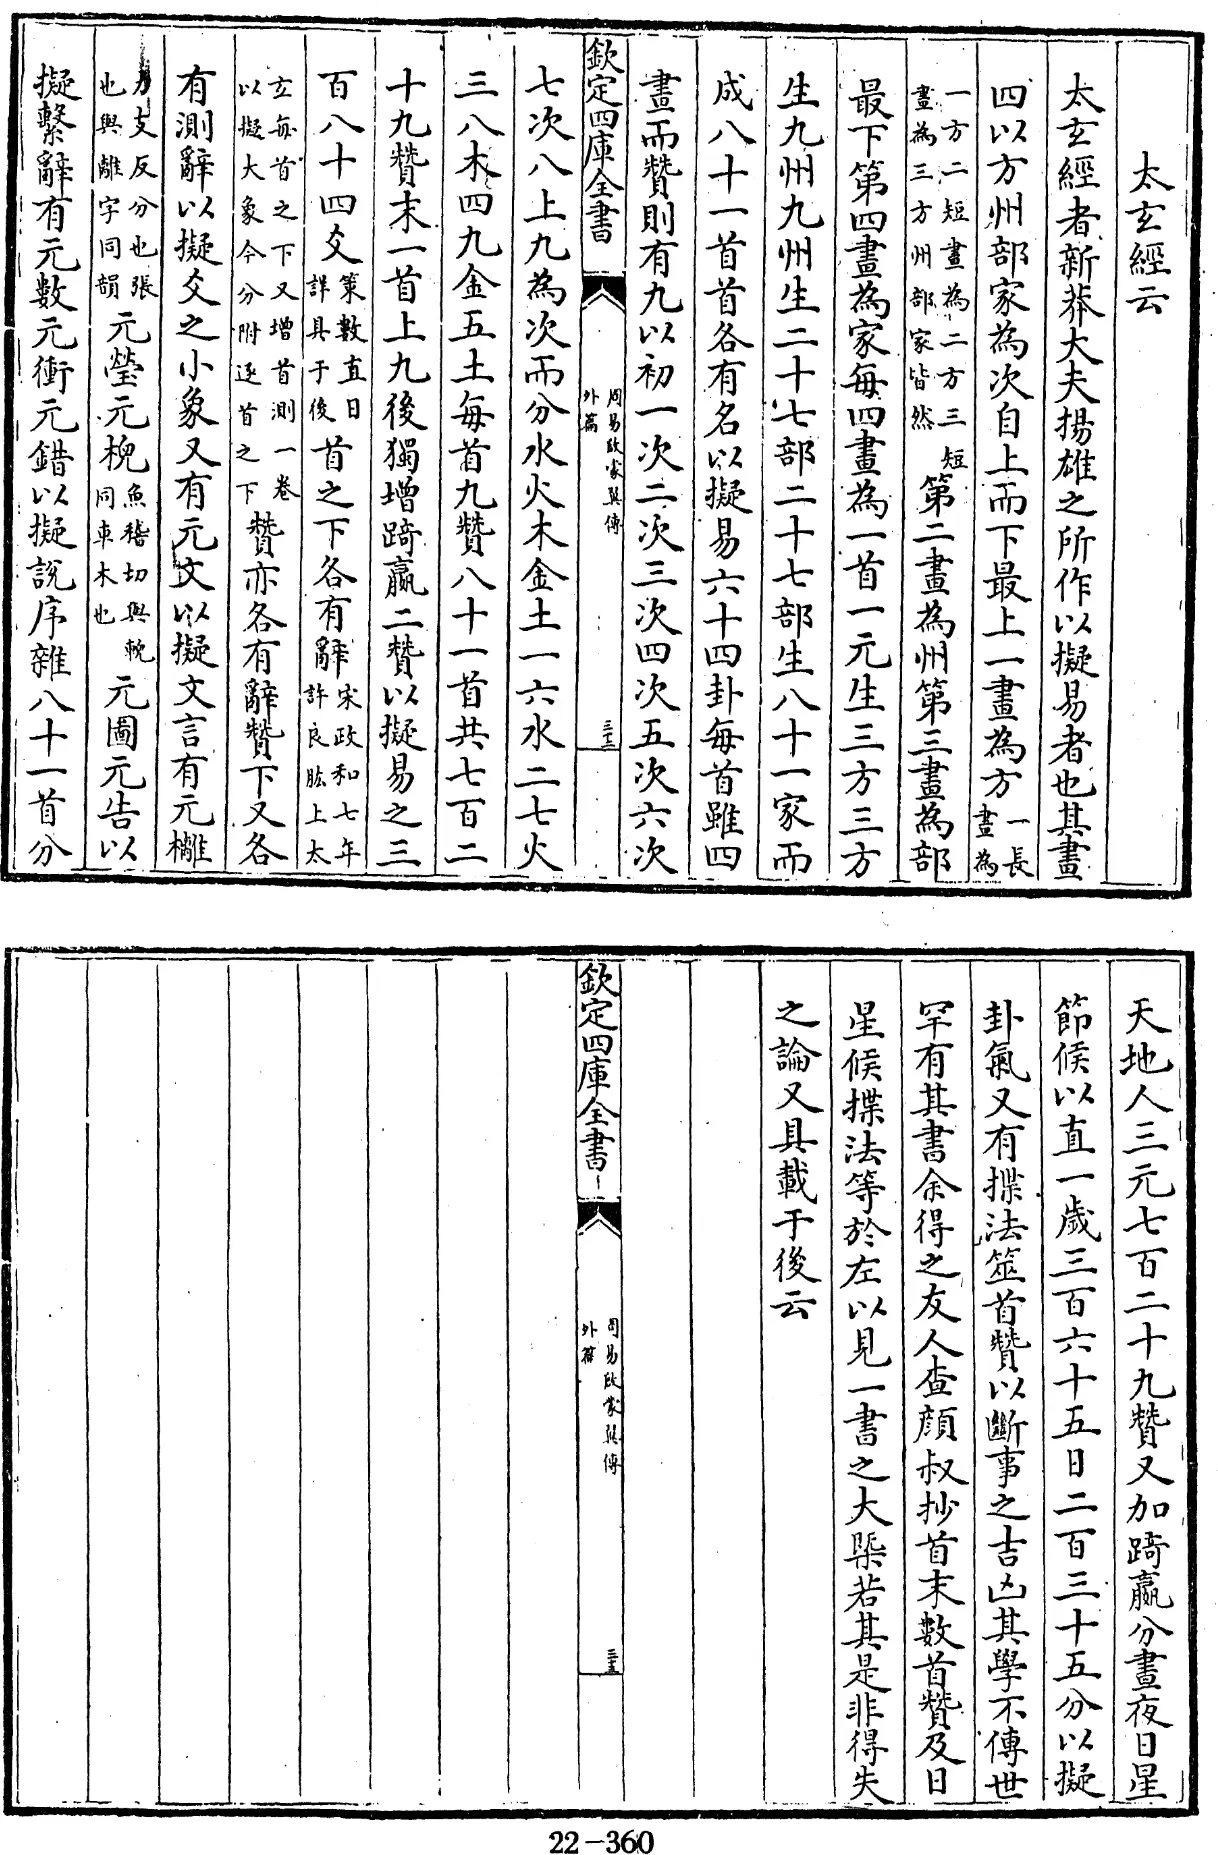 太玄經云
太玄經者新莽大夫揚雄之所作以擬易者也其畫
四以方州部家為次自上而下最上一畫為方一長畫為
一方二短畫為二方三短畫為三方州部家皆然第二畫為州第三畫為部
最下第四畫為家每四畫為一首一元生三方三方
生九州九州生二十七部二十七部生八十一家而
成八十一首首各有名以擬易六十四卦每首雖四
畫而贊則有九以初一次二次三次四次五次六次
欽定四庫全書
周易啟蒙翼傳
外篇
三三
七次八上九為次而分水火木金土一六水二七火
三八木四九金五土每首九贊八十一首共七百二
十九贊末一首上九後獨增踦贏二贊以擬易之三
百八十四爻策數直日詳具于後首之下各有辭宋政和七年許良肱上太
玄每首之下又增首測一卷以擬大象今分附逐首之下贊亦各有辭贊下又各
有測辭以擬爻之小象又有元文以擬文言有元攡
力支反分也張也與離字同韻元瑩元棿魚稽切與輗同車木也元圖元告以
擬繫辭有元數元衝元錯以擬說序雜八十一首分
天地人三元七百二十九贊又加踦贏分晝夜日星
節候以直一歲三百六十五日二百三十五分以擬
卦氣又有揲法筮首贊以斷事之吉凶其學不傳世
罕有其書余得之友人查顏叔抄首末數首贊及日
星候揲法等於左以見一書之大槩若其是非得失
之論又具載于後云
欽定四庫全書
周易啟蒙翼傳
外篇
22-360